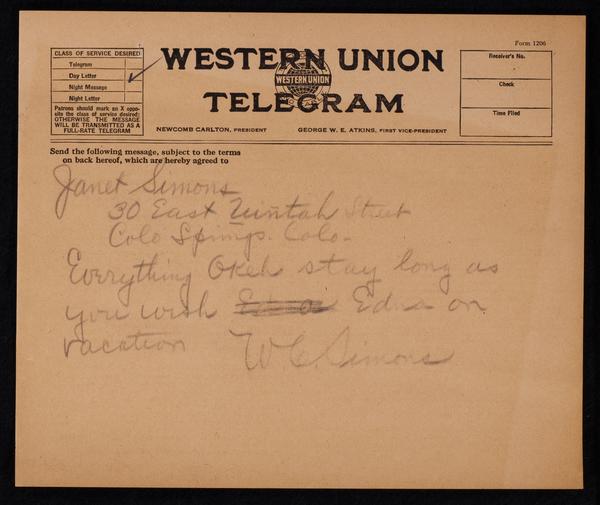 Form 1206
CLASS OF SERVICE DESIRED
Telegram
Day Letter
Night Message
Night Letter
Patrons should mark an X oppo-
site the class of service desired;
OTHERWISE THE MESSAGE
WILL BE TRANSMITTED AS A
FULL-RATE TELEGRAM
WESTERN UNION
WESTERN UNION
TELEGRAM
NEWCOMB CARLTON, PRESIDENT
GEORGE W. E. ATKINS, FIRST VICE-PRESIDENT
Receiver's No.
Check
Time Filed
Send the following message, subject to the terms
on back hereof, which are hereby agreed to
Janet Simons
30 East Uintah Street
Colo Springs. Colo-
Everything Okeh stay long as
you wish Edna Edna on
vacation W.C. Simons